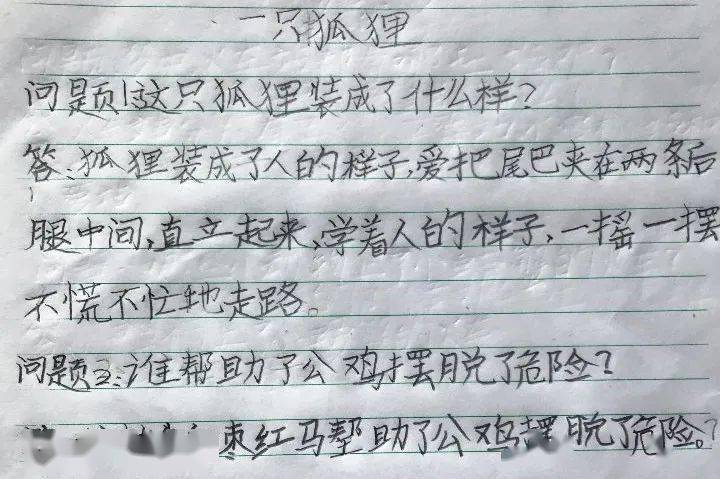 一只狐狸
问题1这只狐狸装成了什么样？
答：狐狸装成了人的样子，爱把尾巴夹在两条后
腿中间，直立起来，学着人的样子，一摇一摆
不慌不忙地走路。
问题2：谁帮助了公鸡摆脱了危险？
枣红马帮助了公鸡摆脱了危险。？